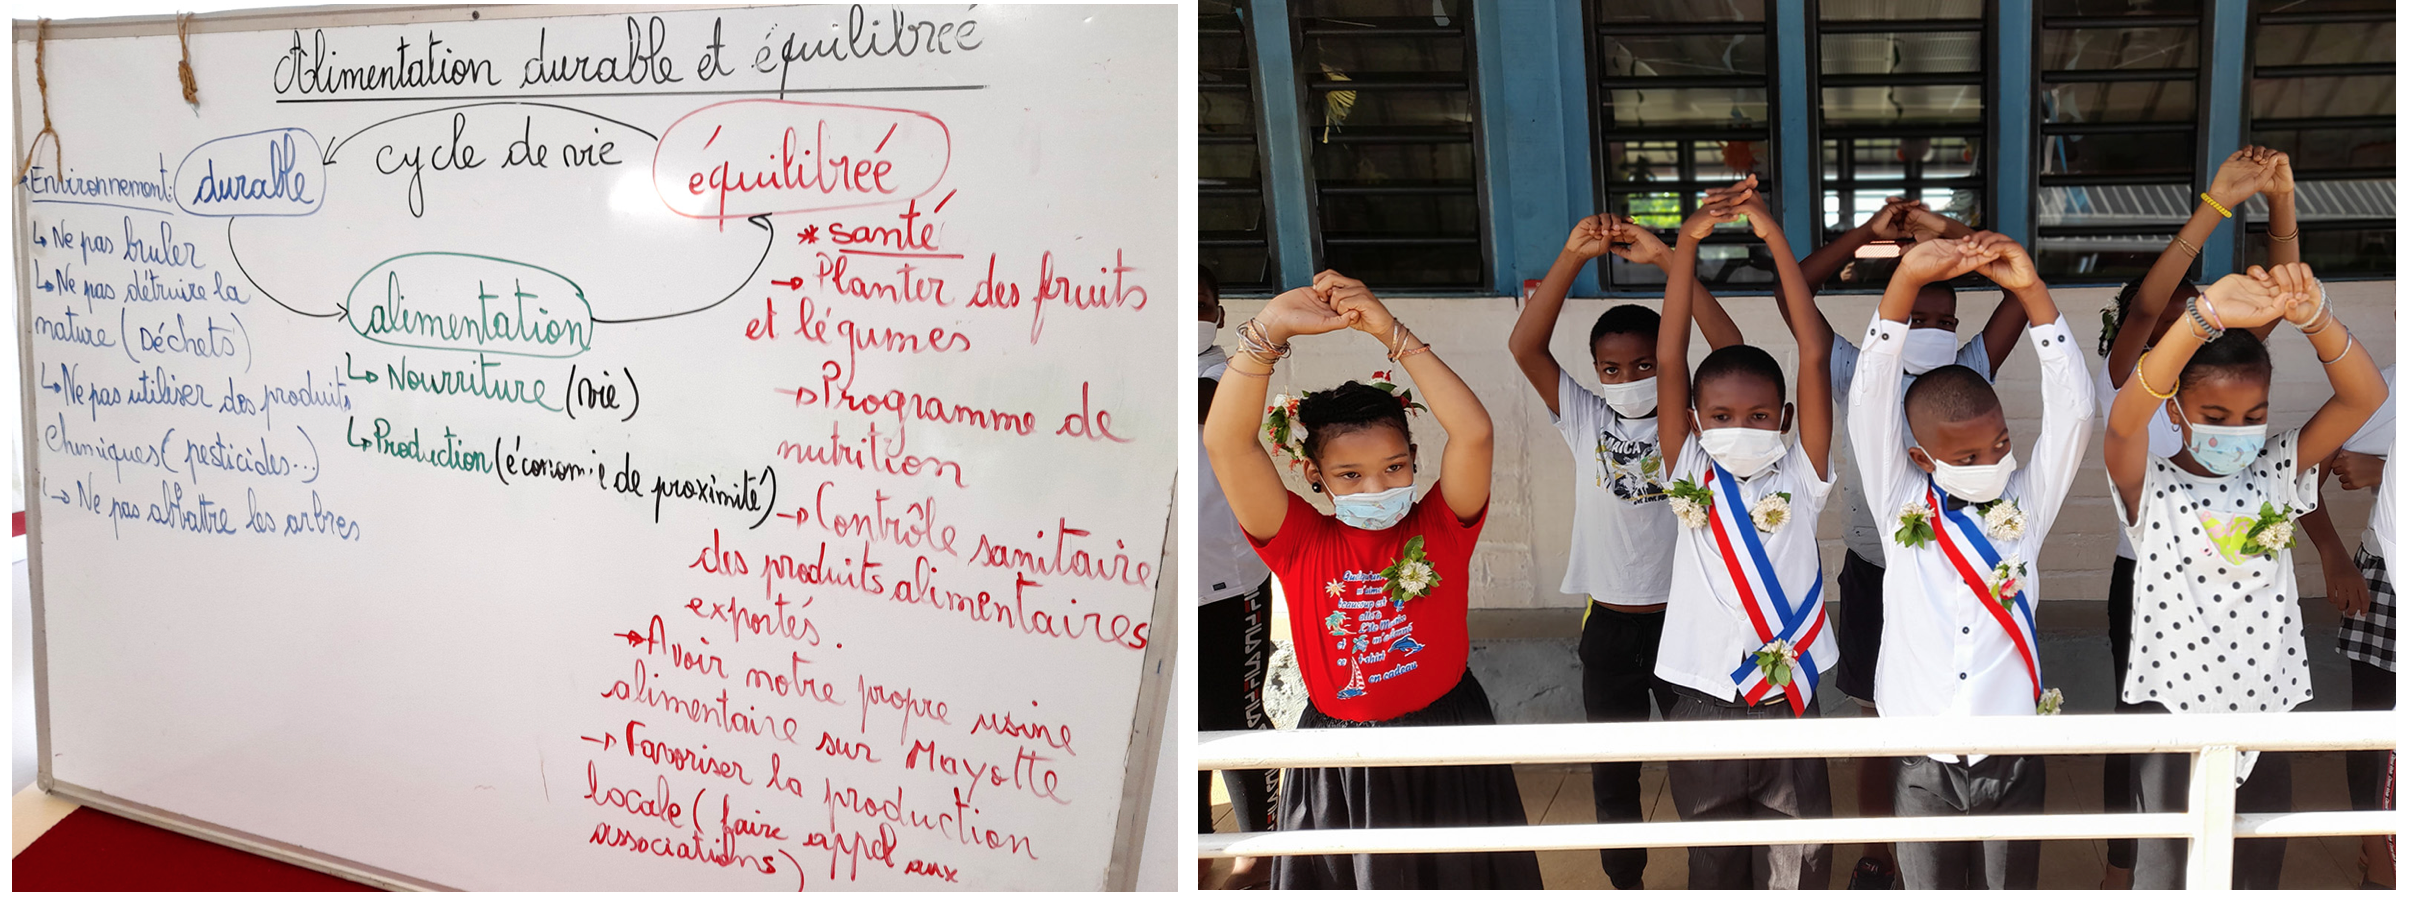 Alimentation durable et équilibreé
cycle de vie
équilibreé
durable
Environnement:
↳ Ne pas bruler
↳ Ne pas détruire la
nature (Déchets)
↳ Ne pas utiliser des produits
Chimiques (pesticides...)
↳ Ne pas abbattre les arbres
alimentation
↳ Nourriture (vie)
↳ Production (économie de proximité)
* santé
→ Planter des fruits
et légumes
→ Programme de
nutrition
→ Contrôle sanitaire
des produits alimentaires
exportés.
→ Avoir notre propre usine
alimentaire sur Mayotte
→ Favoriser la production
locale (faire appel aux
associations)
Quelqu'un
m'aime
beaucoup est
allé à
m'a donné
t-shirt
en cadeau